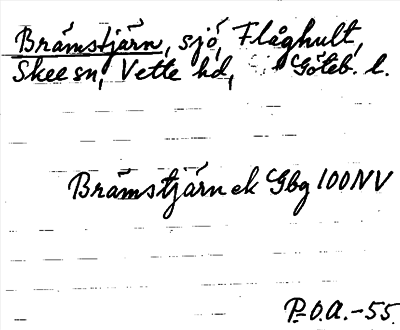 Brämstjärn, sjö, Flåghult,
Skee sn, Vette hd, Göteb. l.
Brämstjärn ek Gbg 100NV
P.O.A.-55.